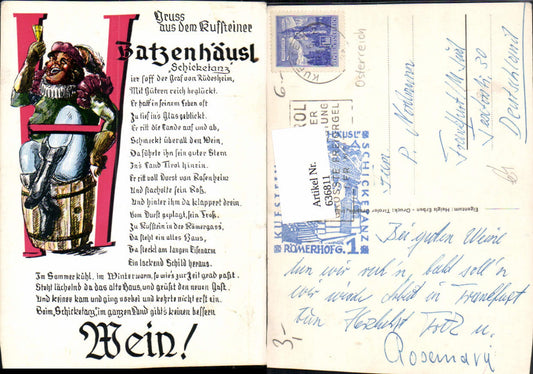 Gruss
aus dem Kufsteiner
Batzenhäusl
"Schicketanz"
Hier soff der Graf von Rüdesheim,
Mit Gütren reich beglückt.
Er hatt' in seinem Leben oft
Zu tief ins Glas geblickt.
Er ritt die Lande auf und ab,
Schmeckt überall den Wein,
Da führte ihn sein guter Stern
Ins Land Tirol hinein.
Er ritt voll Durst von Rosenheim
Und stachelte sein Roß,
Und hinter ihm da klappert drein,
Vom Durst geplagt, sein Troß.
Zu Kufstein in der Römergass,
Da steht ein altes Haus,
Da steckt am langen Eisenarm
Ein lackend Schild heraus.
Im Sommer kühl, im Winter warm, so wie's zur Zeit grad paßt.
Steht lächelnd da das alte Haus, und grüßt den neuen Gast.
Und keiner kam und ging vorbei und kehrte nicht erst ein.
Beim "Schicketanz" im ganzen Land gibt's keinen bessern
Wein!
Österreich
6-
Artikel Nr.
636811
KUFSTEIN
SCHICKETANZ
RÖMERHOFG. 1
Eigentum: Helgis Erben - Druck: Tiroler
Frankfurt/M Süd
Deutschland
Bei guten Weine
wir
wir wieder in Frankfurt
Fritz u.
Rosemarie
3,-